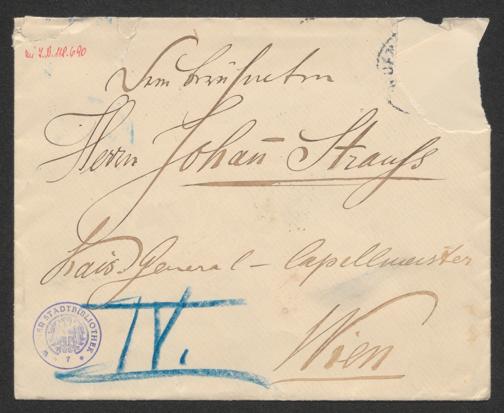 zu I.N. 118.690
Dem berühmten
Herrn Johann Strauss
Kais. General-Capellmeister
Wien
IV.
STADTBIBLIOTHEK